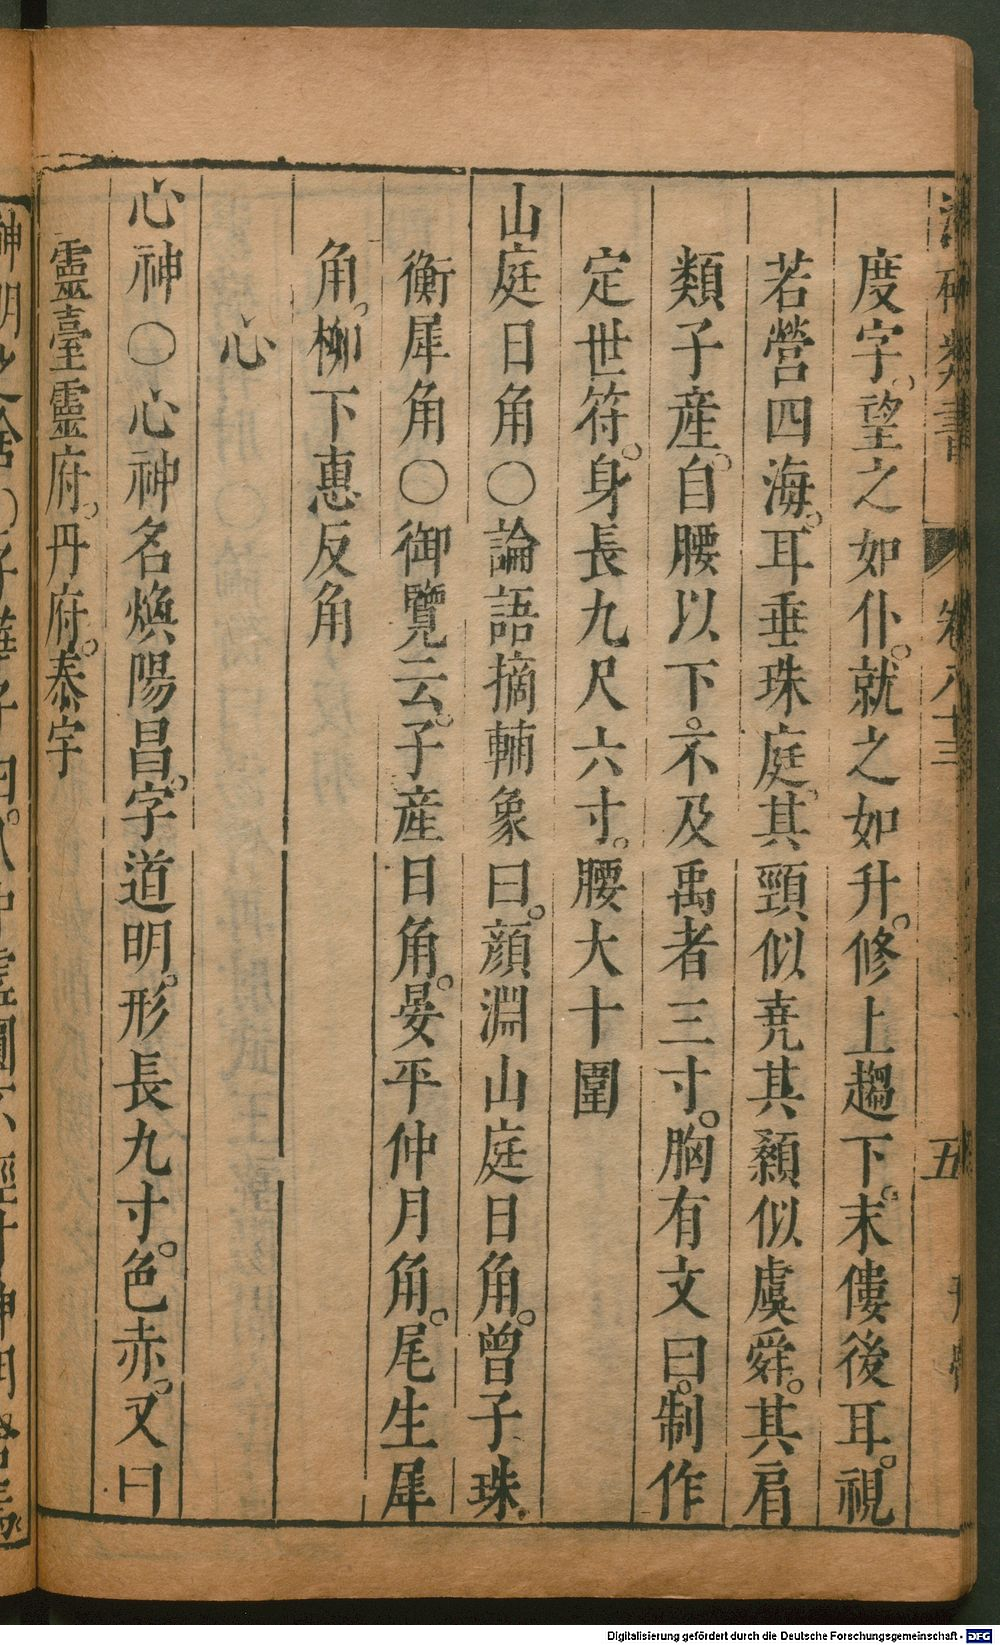 卷八十三 五
度字望之如仆就之如升修上趨下末僂後耳視
若營四海耳垂珠庭其頸似堯其顙似虞舜其肩
類子產自腰以下不及禹者三寸胸有文曰制作
定世符身長九尺六寸腰大十圍
山庭日角〇論語摘輔象曰顏淵山庭日角曾子珠
衡犀角〇御覽云子產日角晏平仲月角尾生犀
角柳下惠反角
心
心神〇心神名煥陽昌字道明形長九寸色赤又曰
靈臺靈府丹府泰宇
Digitalisierung gefördert durch die Deutsche Forschungsgemeinschaft - DFG